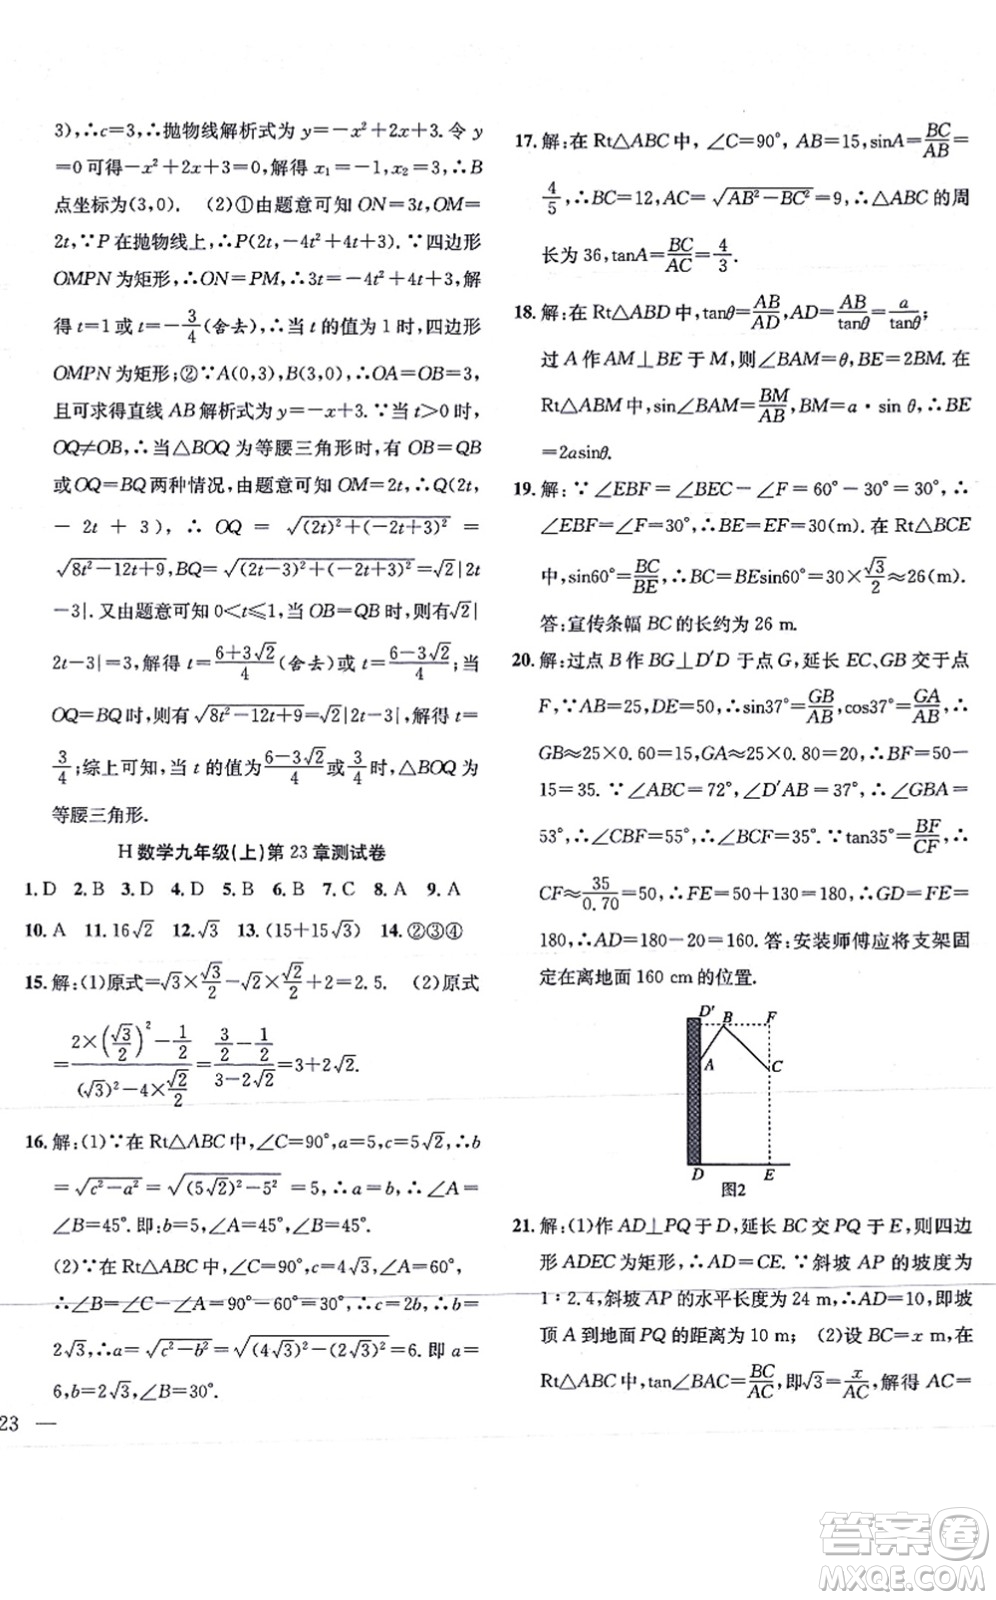 3),∴c=3,∴抛物线解析式为 y=-x²+2x+3.令 y
=0可得-x²+2x+3=0,解得 x₁=-1,x₂=3,∴B
点坐标为(3,0). (2)①由题意可知 ON=3t,OM=
2t,∵P 在抛物线上,∴P(2t,-4t²+4t+3).∵四边形
OMPN 为矩形,∴ON=PM,∴3t=-4t²+4t+3,解
得 t=1 或 t=-3/4(舍去),∴当 t 的值为 1 时,四边形
OMPN 为矩形;②∵A(0,3),B(3,0),∴OA=OB=3,
且可求得直线 AB 解析式为 y=-x+3.∵当 t>0 时,
OQ≠OB,∴当△BOQ 为等腰三角形时,有 OB=QB
或 OQ=BQ 两种情况,由题意可知 OM=2t,∴Q(2t,
-2t+3),∴OQ=√((2t)²+(-2t+3)²)=
√(8t²-12t+9),BQ=√((2t-3)²+(-2t+3)²)=√2|2t
-3|.又由题意可知 0<t≤1,当 OB=QB 时,则有√2|
2t-3|=3,解得 t=(6+3√2)/4(舍去)或 t=(6-3√2)/4;当
OQ=BQ 时,则有√(8t²-12t+9)=√2|2t-3|,解得 t=
3/4;综上可知,当 t 的值为(6-3√2)/4或3/4时,△BOQ 为
等腰三角形.
H 数学九年级(上)第 23 章测试卷
1. D 2. B 3. D 4. D 5. B 6. B 7. C 8. A 9. A
10. A 11. 16√2 12. √3 13. (15+15√3) 14. ②③④
15. 解:(1)原式=√3×√3/2-√2×√2/2+2=2.5. (2)原式
=(2×(√3/2)²-1/2)/((√3)²-4×√2/2)=(3/2-1/2)/(3-2√2)=3+2√2.
16. 解:(1)∵在 Rt△ABC 中,∠C=90°,a=5,c=5√2,∴b
=√(c²-a²)=√((5√2)²-5²)=5,∴a=b,∴∠A=
∠B=45°.即:b=5,∠A=∠B=45°.
(2)∵在 Rt△ABC 中,∠C=90°,c=4√3,∠A=60°,
∴∠B=∠C-∠A=90°-60°=30°,∴b=1/2c,∴b=
2√3,∴a=√(c²-b²)=√((4√3)²-(2√3)²)=6.即 a=
6,b=2√3,∠B=30°.
23 —
17. 解:在 Rt△ABC 中,∠C=90°,AB=15,sinA=BC/AB=
4/5,∴BC=12,AC=√(AB²-BC²)=9,∴△ABC 的周
长为 36,tanA=BC/AC=4/3.
18. 解:在 Rt△ABD 中,tanθ=AB/AD,AD=AB/tanθ=a/tanθ;
过 A 作 AM⊥BE 于 M,则∠BAM=θ,BE=2BM.在
Rt△ABM 中,sin∠BAM=BM/AB,BM=a·sin θ,∴BE
=2asinθ.
19. 解:∵∠EBF=∠BEC-∠F=60°-30°=30°,∴
∠EBF=∠F=30°,∴BE=EF=30(m).在 Rt△BCE
中,sin60°=BC/BE,∴BC=BEsin60°=30×√3/2≈26(m).
答:宣传条幅 BC 的长约为 26 m.
20. 解:过点 B 作 BG⊥D′D 于点 G,延长 EC、GB 交于点
F,∵AB=25,DE=50,∴sin37°=GB/AB,cos37°=GA/AB,∴
GB≈25×0.60=15,GA≈25×0.80=20,∴BF=50-
15=35.∵∠ABC=72°,∠D′AB=37°,∴∠GBA=
53°,∴∠CBF=55°,∴∠BCF=35°.∵tan35°=BF/CF,∴
CF≈35/0.70=50,∴FE=50+130=180,∴GD=FE=
180,∴AD=180-20=160.答:安装师傅应将支架固
定在离地面 160 cm 的位置.
D′ B F
A C
D E
图2
21. 解:(1)作 AD⊥PQ 于 D,延长 BC 交 PQ 于 E,则四边
形 ADEC 为矩形,∴AD=CE.∵斜坡 AP 的坡度为
1:2.4,斜坡 AP 的水平长度为 24 m,∴AD=10,即坡
顶 A 到地面 PQ 的距离为 10 m; (2)设 BC=x m,在
Rt△ABC 中,tan∠BAC=BC/AC,即√3=x/AC,解得 AC=
答案卷
MXQE.COM